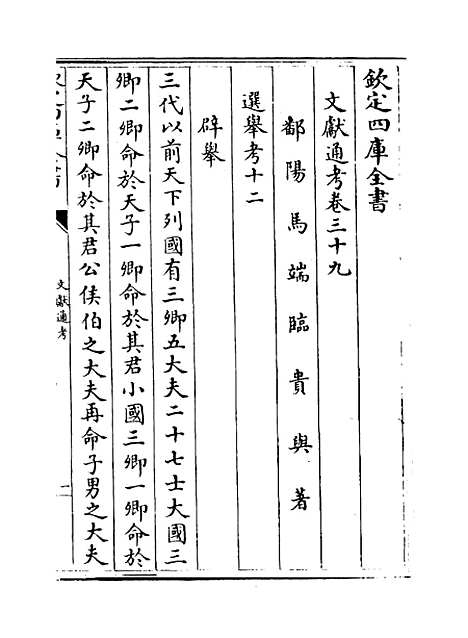 欽定四庫全書
文獻通考卷三十九
鄱陽馬端臨貴與著
選舉考十二
辟舉
三代以前天下列國有三卿五大夫二十七士大國三
卿二卿命於天子一卿命於其君小國三卿一卿命於
天子二卿命於其君公侯伯之大夫再命子男之大夫
文獻通考